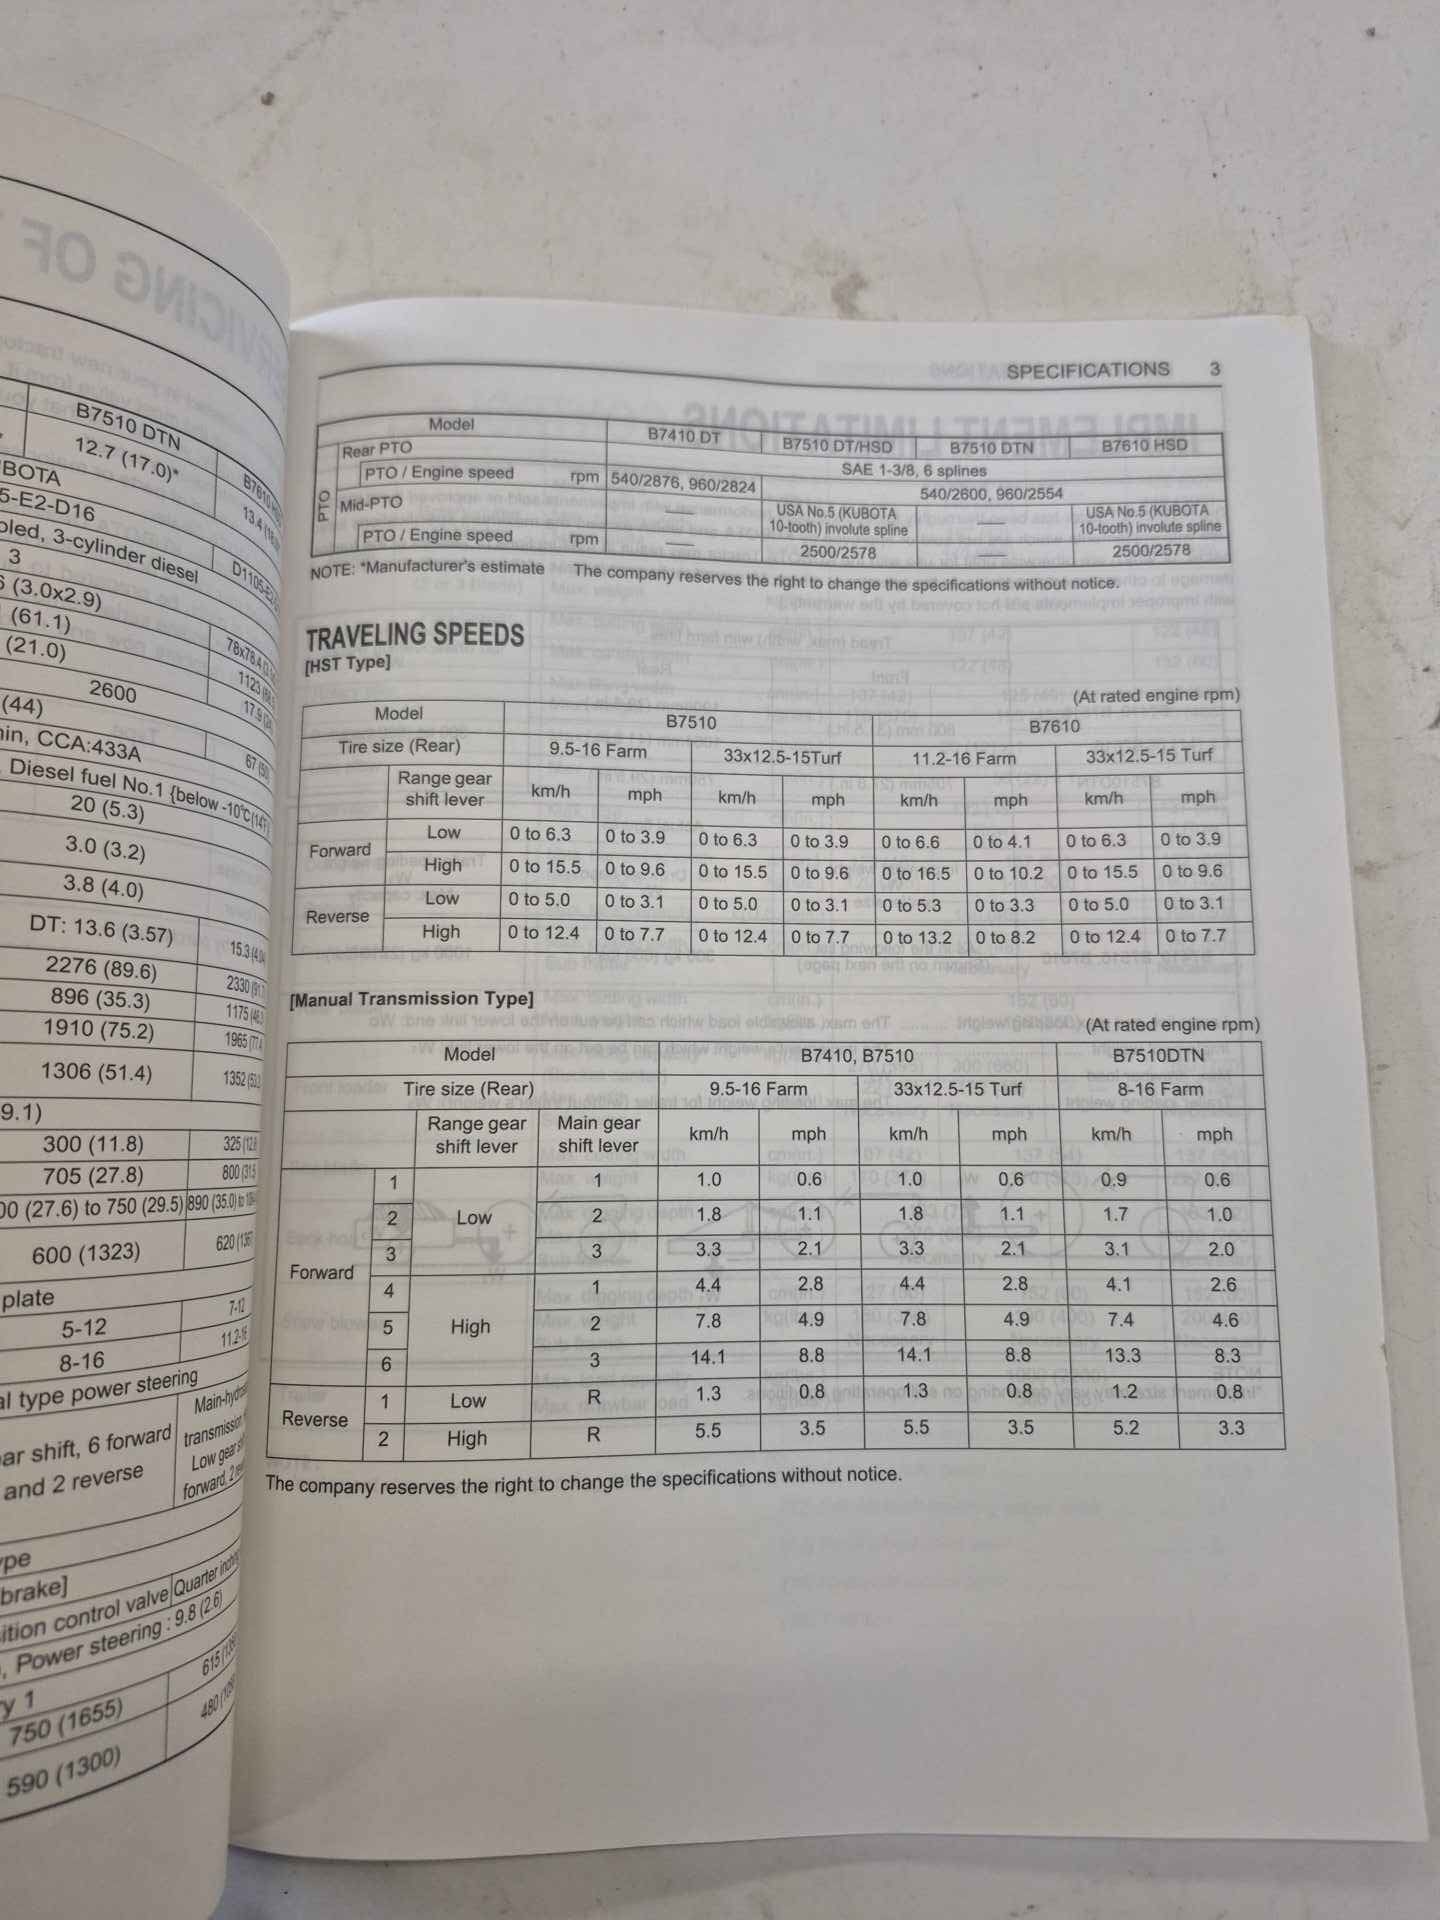 B7510 DTN
12.7 (17.0)*
BOTA
5-E2-D16
oled, 3-cylinder diesel
D1105-E2
3
(3.0x2.9)
(61.1)
(21.0)
2600
(44)
nin, CCA:433A
Diesel fuel No.1 {below -10°C(14
20 (5.3)
3.0 (3.2)
3.8 (4.0)
DT: 13.6 (3.57)
2276 (89.6)
896 (35.3)
1910 (75.2)
1306 (51.4)
9.1)
300 (11.8)
705 (27.8)
00 (27.6) to 750 (29.5)
600 (1323)
plate
5-12 7-12
8-16 11.2-16
al type power steering
ar shift, 6 forward
and 2 reverse
Main-hyd
transmission
Low gear s
forward, 2
ype
brake]
ition control valve Quarter inching
, Power steering : 9.8 (2.6)
ry 1
750 (1655)
590 (1300)
SPECIFICATIONS 3
Model B7410 DT B7510 DT/HSD B7510 DTN B7610 HSD
PTO
Rear PTO SAE 1-3/8, 6 splines
PTO / Engine speed rpm 540/2876, 960/2824 540/2600, 960/2554
Mid-PTO — USA No.5 (KUBOTA 10-tooth) involute spline — USA No.5 (KUBOTA 10-tooth) involute spline
PTO / Engine speed rpm — 2500/2578 — 2500/2578
NOTE: *Manufacturer's estimate The company reserves the right to change the specifications without notice.
TRAVELING SPEEDS
[HST Type]
(At rated engine rpm)
Model B7510 B7610
Tire size (Rear) 9.5-16 Farm 33x12.5-15Turf 11.2-16 Farm 33x12.5-15 Turf
Range gear shift lever km/h mph km/h mph km/h mph km/h mph
Forward Low 0 to 6.3 0 to 3.9 0 to 6.3 0 to 3.9 0 to 6.6 0 to 4.1 0 to 6.3 0 to 3.9
High 0 to 15.5 0 to 9.6 0 to 15.5 0 to 9.6 0 to 16.5 0 to 10.2 0 to 15.5 0 to 9.6
Reverse Low 0 to 5.0 0 to 3.1 0 to 5.0 0 to 3.1 0 to 5.3 0 to 3.3 0 to 5.0 0 to 3.1
High 0 to 12.4 0 to 7.7 0 to 12.4 0 to 7.7 0 to 13.2 0 to 8.2 0 to 12.4 0 to 7.7
[Manual Transmission Type]
(At rated engine rpm)
Model B7410, B7510 B7510DTN
Tire size (Rear) 9.5-16 Farm 33x12.5-15 Turf 8-16 Farm
Range gear shift lever Main gear shift lever km/h mph km/h mph km/h mph
Forward 1 Low 1 1.0 0.6 1.0 0.6 0.9 0.6
2 2 1.8 1.1 1.8 1.1 1.7 1.0
3 3 3.3 2.1 3.3 2.1 3.1 2.0
4 High 1 4.4 2.8 4.4 2.8 4.1 2.6
5 2 7.8 4.9 7.8 4.9 7.4 4.6
6 3 14.1 8.8 14.1 8.8 13.3 8.3
Reverse 1 Low R 1.3 0.8 1.3 0.8 1.2 0.8
2 High R 5.5 3.5 5.5 3.5 5.2 3.3
The company reserves the right to change the specifications without notice.